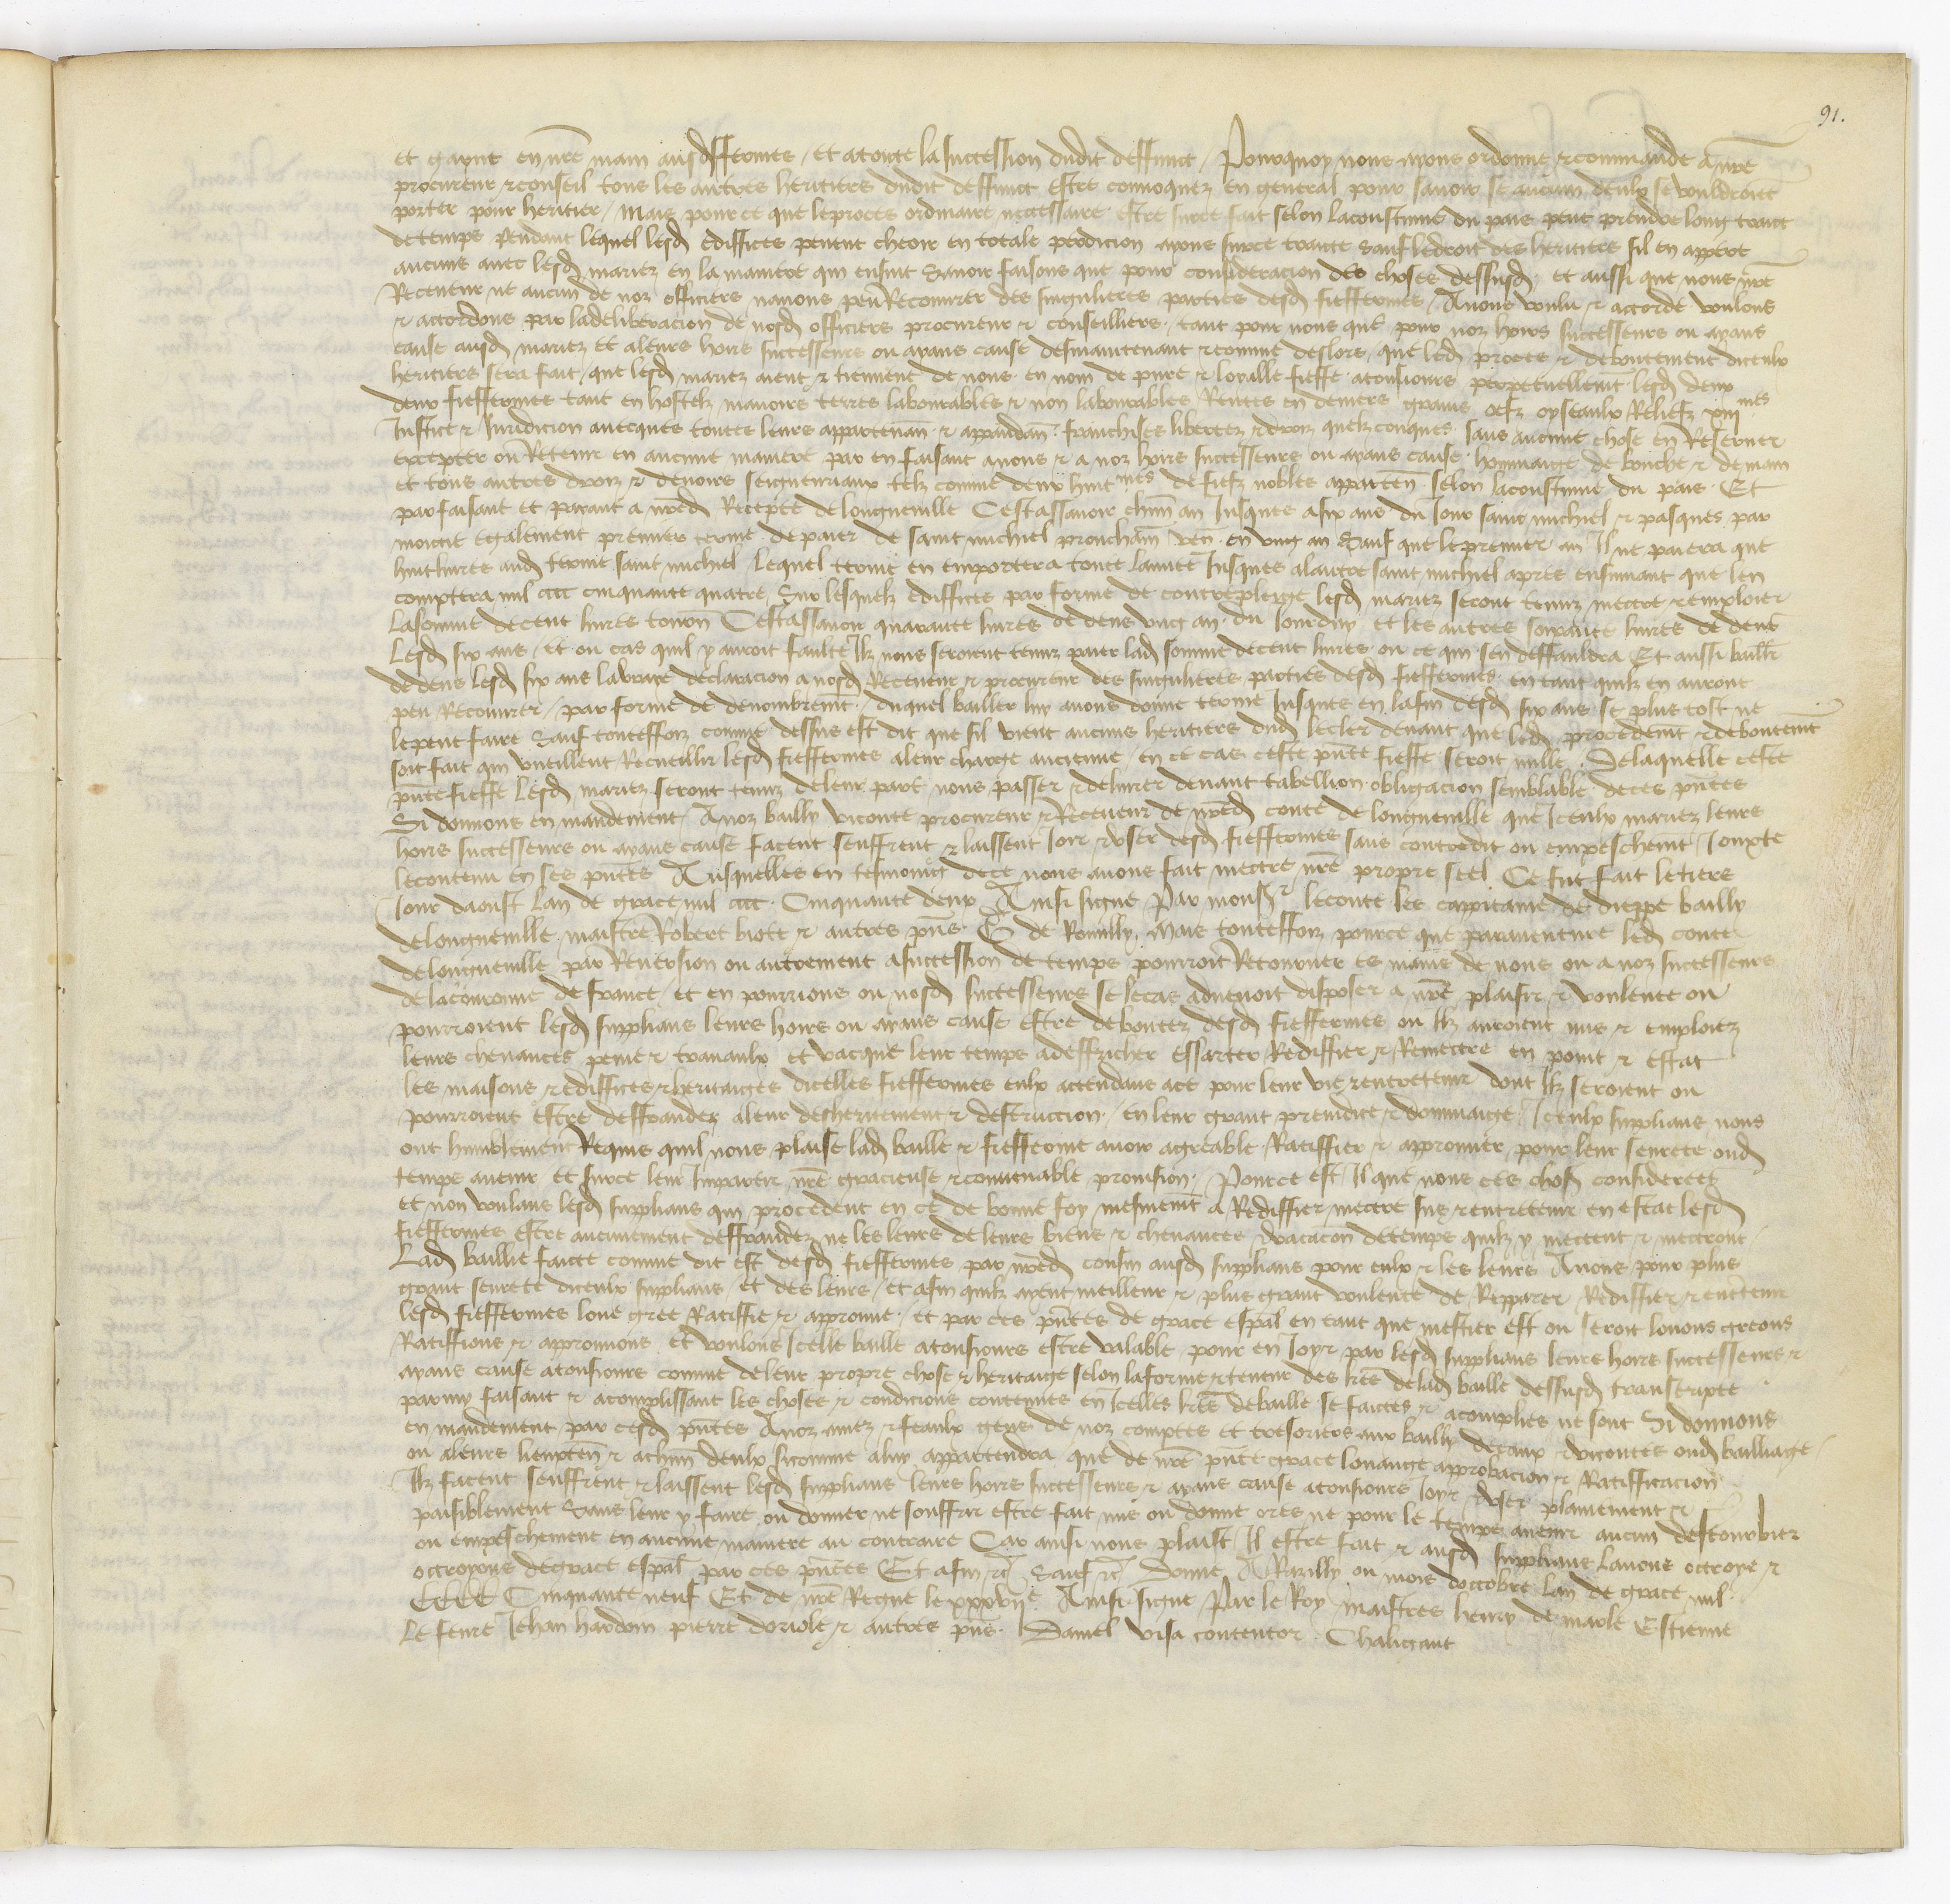 91.
et gaynt en nre main ausd ffermes / et a toute la succession dudit deffunct / Pourquoy nous ayons ordonne & commande a nre
procureur & conseil tous les autres heritiers dudit deffunct estre conuoquez en general pour sauoir se aucun deulx se vouldroient
porter pour heritier / Mais pource que le proces ordinaire necessaire estre surce fait selon la coustume du pais peut prendre long traict
de temps Pendant lequel lesd ediffices peuent cheoir en totale perdicion ayons surce traicte sauf le droit des heritiers sil en appert
aucuns auec lesd mariez en la maniere qui ensuit Sauoir faisons que pour consideracion des choses dessusd et aussi que nous nre
Receueur ne aucun de noz officiers nauons peu Recouurer des singulieres parties desd fieffermes / Auons voulu & accorde voulons
& accordons par la deliberacion de nosd officiers procureur & conseilliers / tant pour nous que pour noz hoirs successeurs ou ayans
cause ausd mariez et a leurs hoirs successeurs ou ayans cause desmaintenant & comme deslors / que led proces & deboutement diceulx
heritiers sera fait / que lesd mariez aient & tiennent de nous en nom de pure & loyalle fieffe a tousiours perpetuellemt lesd deux
deux fieffermes tant en hostelz manoirs terres labourables & non labourables Rentes en deniers grains oefz oyseaulx Reliefz xiijmes
Justice & Juridicion auecques toutes leurs appartenan & appandan franchises libertez & droiz quelzconques sans aucune chose en Reseruer
excepter ou Retenir en aucune maniere par en faisant a nous & a noz hoirs successeurs ou ayans cause hommaige de bouche & de main
et tous autres droiz & deuoirs seigneuriaux telz comme deux huitmes de fiefz nobles apparten selon la coustume du pais Et
par faisant et paiant a nred Recepte de longueuille Cestassauoir chun an Jusques a six ans du Jour saint michiel & pasques par
moictie egalement premier terme de paier de saint michiel prouchain ven en vng an Sauf que le premier an Il ne paiera que
huit liures aud terme saint michiel lequel terme en emportera toute lannee Jusques a lautre saint michiel apres ensuiuant que len
comptera mil cccc cinquante quatre Sur lesquelz ediffices par forme de contrepleige lesd mariez seront tenuz mectre & emploier
la somme de cent liures tourn Cestassauoir quarante liures de dens vng an du Jourduy et les autres soixante liures de dens
Lesd six ans / Et ou cas quil y auroit faulte Ilz nous seroient tenuz paier lad somme de cent liures ou ce qui sen deffauldra Et aussi baillr
de dens lesd six ans la vraye declaracion a nosd Receueur & procureur des singulieres parties desd fieffermes en tant quilz en auront
peu Recouurer / par forme de denombremt / duquel bailler luy auons donne terme Jusques en la fin desd six ans se plus tost ne
le peut faire Sauf touteffoiz comme dessus est dit que sil vient aucuns heritiers dud lecler deuant que led procedemt & deboutemt
soit fait qui vueillent Recueillir lesd fieffermes a leur charge ancienne / en ce cas ceste pnte fieffe seroit nulle / De laquelle ceste
pnte fieffe Lesd mariez seront tenuz de leur part nous passer & deliurer deuant tabellion obligacion semblable de ces pntes
Si donnons en mandement A noz bailly viconte procureur & Receueur de nred conte de longueuille que Jceulx mariez leurs
hoirs successeurs ou ayans cause facent seuffrent & laissent Joir & vser desd fieffermes sans contredit ou empeschemt Jouxte
le contenu en ses pntes Ausquelles en tesmoing de ce nous auons fait mectre nre propre seel Ce fut fait le tiers
Jour daoust Lan de grace mil cccc Cinquante deux Ainsi signe Par monsr le conte les cappitaine de dieppe bailly
de longueuille maistre Robert biote & autres pns G de Romilly, Mais touteffoiz pource que parauenture led conte
de longueuille par Reuersion ou autrement a succession de temps pourroit Retourner es mains de nous ou a noz successeurs
de la couronne de france / et en pourrions ou nosd successeurs se le cas aduenoit disposer a nre plaisir & voulente ou
pourroient lesd supplians leurs hoirs ou ayans cause estre deboutez desd fieffermes ou Ilz auroient mis & emploiez
leurs cheuances peine & trauaulx et vacque leur temps a deffricher essarter Rediffier & Remectre en point & estat
les maisons & ediffices & heritaiges dicelles fieffermes eulx actendans a ce pour leur vie & entretenir dont Ilz seroient ou
pourroient estre deffraudez a leur desheritement & destruccion / en leur grant preiudice & dommaige Jceulx supplians nous
ont humblement Requis quil nous plaise lad baille & fiefferme auoir agreable Ratiffier & approuuer pour leur seurete oud
temps auenir et surce leur Impartir nre gracieuse & conuenable prouision / Pource est Il que nous ces choses considerees
et non voulans lesd supplians qui procedent en ce de bonne foy mesmemt a Rediffier mectre sus & entretenir en estat lesd
fieffermes estre aucunement deffraudez ne les leurs de leurs biens & cheuances vacacon de temps quilz y mectent & mectront
Lad baillie faicte comme dit est desd fieffermes par nred cousin ausd supplians pour eulx & les leurs Auons pour plus
grant seurete diceulx supplians et des leurs / et afin quilz ayent meilleur & plus grant voulente de Repparer Rediffier & entretenir
lesd fieffermes loue gree Ratiffie & approuue et par ces pntes de grace espal en tant que mestier est ou seroit louons greons
Ratiffions & approuuons et voulons Icelle baille a tousiours estre valable pour en Joyr par lesd supplians leurs hoirs successeurs &
ayans cause a tousiours comme de leur propre chose & heritaige selon la forme & teneur des lres de lad baille dessusd transcripte
parmy faisant & acomplissant les choses & condicions contenues en Icelles lres de baille se faictes & acomplies ne sont Si donnons
en mandement par cesd pntes A noz amez & feaulx gens de noz comptes et tresoriers aux bailly de caux & vicontes oud bailliage
ou a leurs lieuxten & a chun deulx si comme a luy appartendra que de nre pnte grace louange approbacion & Ratifficacion
Ilz facent seuffrent & laissent lesd supplians leurs hoirs successeurs & ayans cause a tousiours Joyr & vser plainement &
paisiblement Sans leur y faire ou donner ne souffrir estre fait mis ou donne ores ne pour le temps auenir aucun destourbier
ou empeschement en aucune maniere au contraire Car ainsi nous plaist Il estre fait & ausd supplians lauons octroye &
octroyons de grace espal par ces pntes Et afin &c Sauf &c Donne A Razilly ou mois doctobre Lan de grace mil
CCCC Cinquante neuf Et de nre Regne le xxxvije Ainsi signe Par le Roy maistres henry de marle Estienne
Le feure Jehan hardoin pierre doriole & autres pns Daniel visa contentor Chaligaut